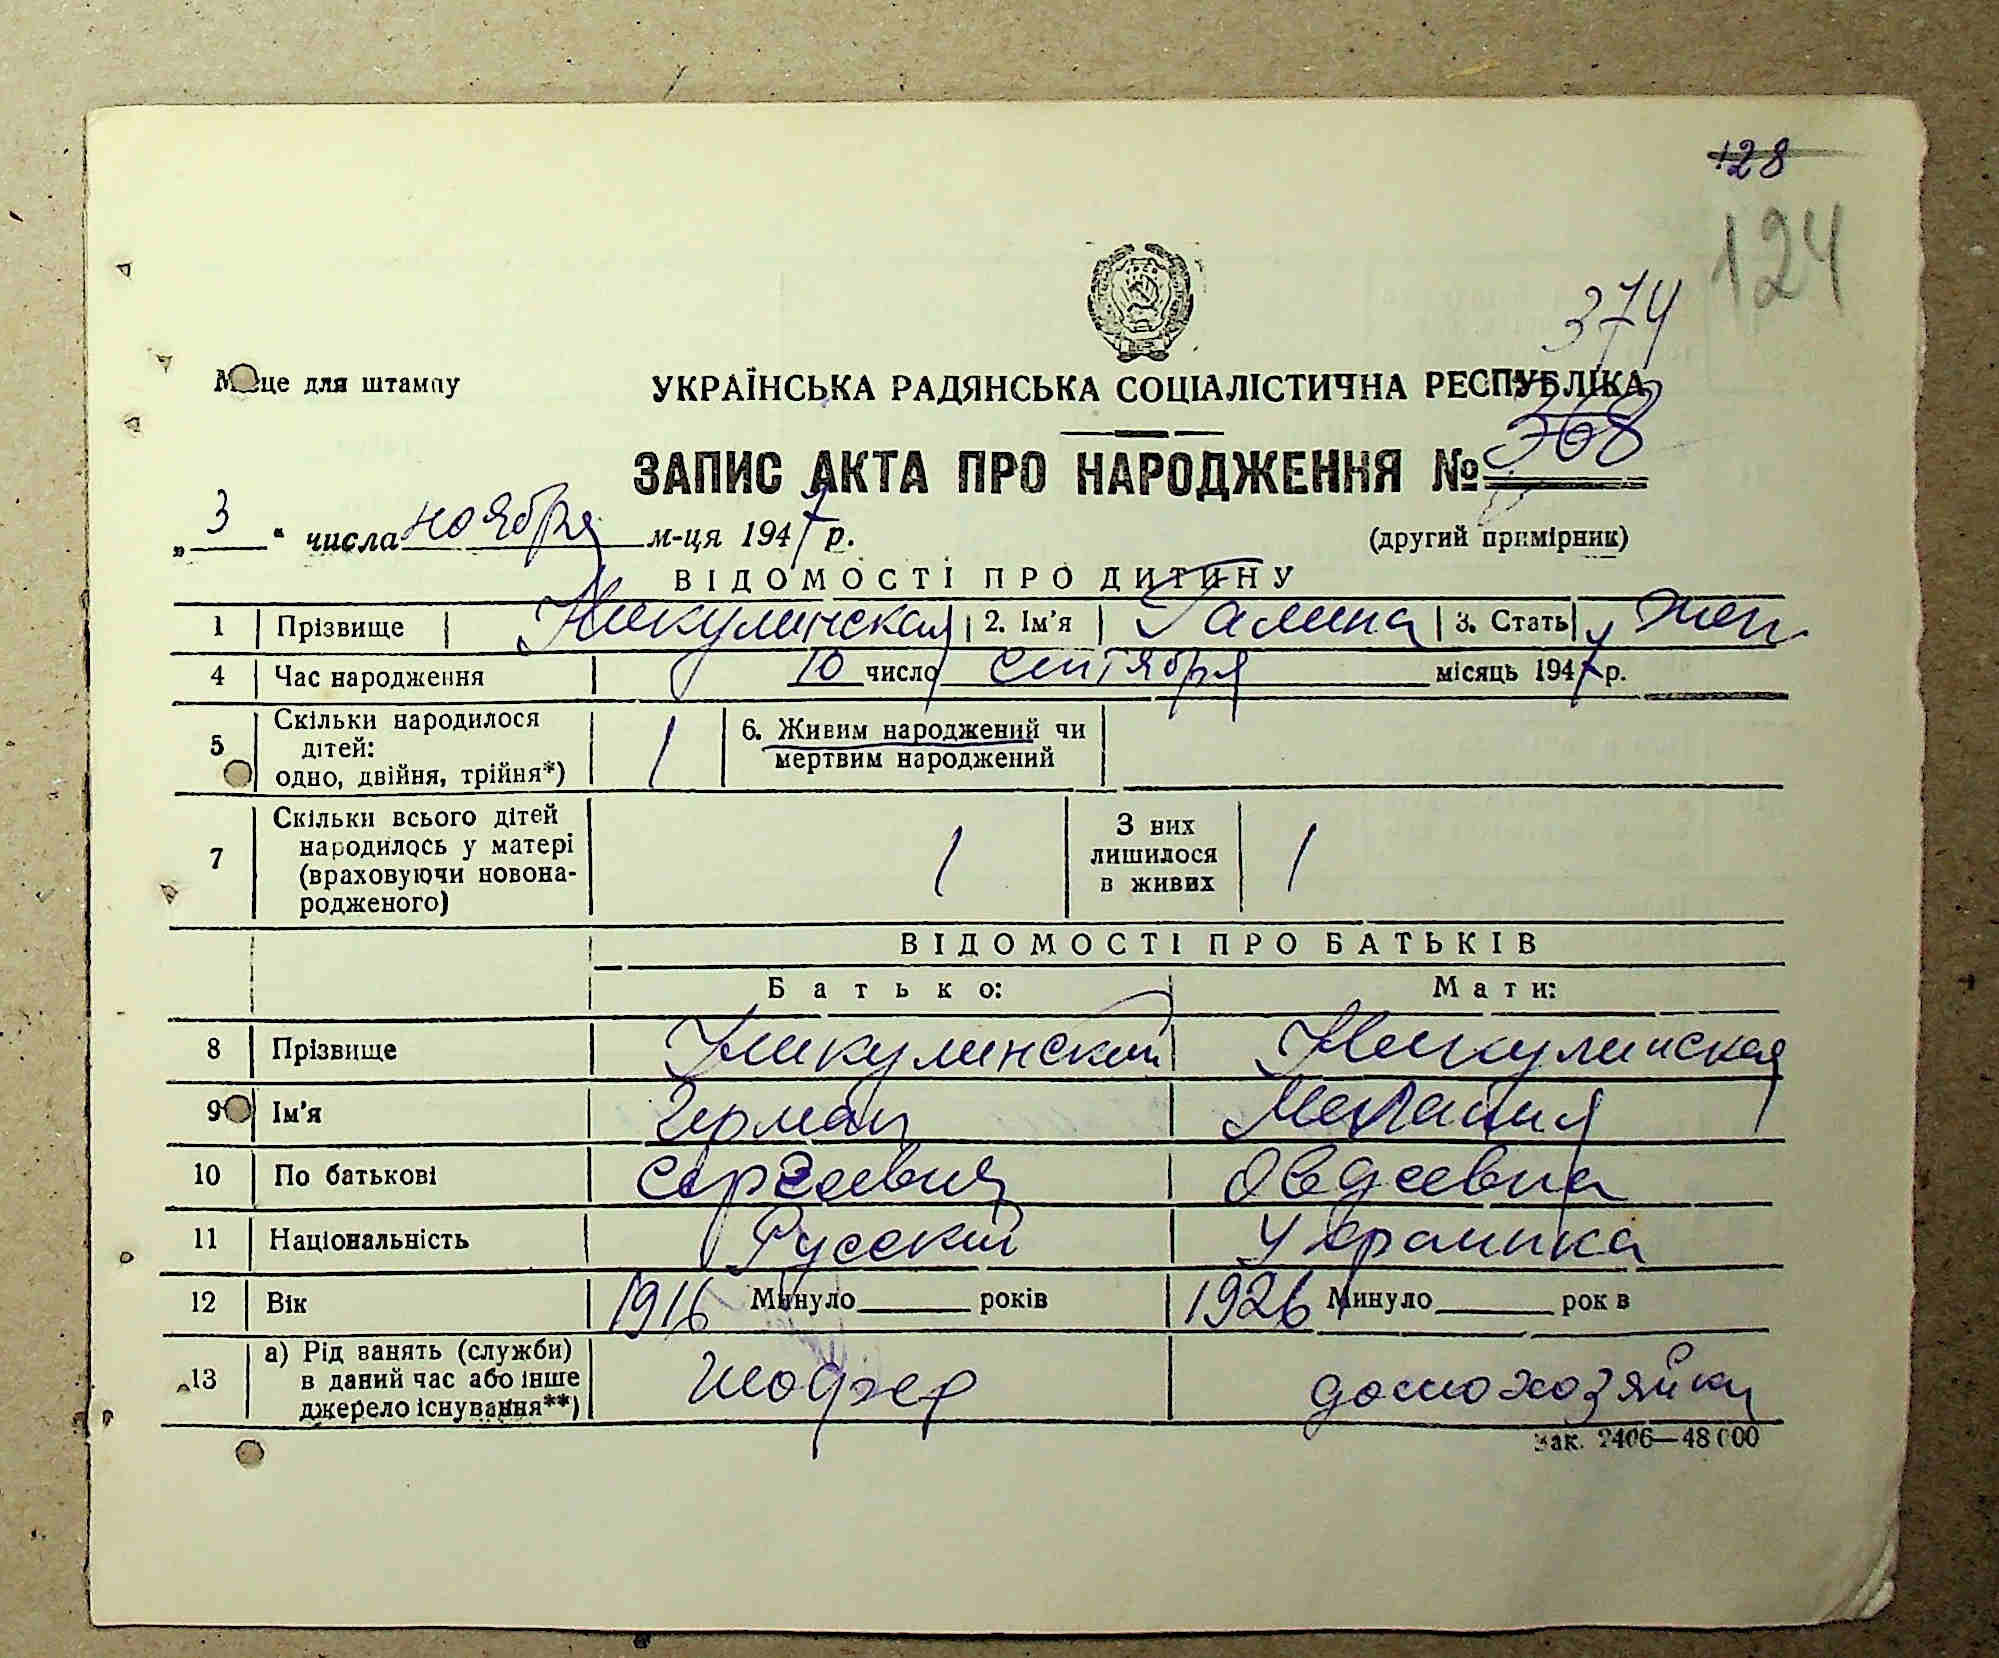 128
124
374
Місце для штампу
УКРАЇНСЬКА РАДЯНСЬКА СОЦІАЛІСТИЧНА РЕСПУБЛІКА
ЗАПИС АКТА ПРО НАРОДЖЕННЯ № 368
„ 3 " числа ноября м-ця 1947 р.
(другий примірник)
ВІДОМОСТІ ПРО ДИТИНУ
1 Прізвище Никулинская 2. Ім'я Галина 3. Стать жен
4 Час народження 10 число сентября місяць 1947 р.
5 Скільки народилося дітей: одно, двійня, трійня*) 1 6. Живим народжений чи мертвим народжений
7 Скільки всього дітей народилось у матері (враховуючи новонародженого) 1 З них лишилося в живих 1
ВІДОМОСТІ ПРО БАТЬКІВ
Батько: Мати:
8 Прізвище Никулинский Никулинская
9 Ім'я Герман Мелания
10 По батькові Сергеевич Овдеевна
11 Національність Русский Украинка
12 Вік 1916 Минуло років 1926 Минуло років
13 а) Рід занять (служби) в даний час або інше джерело існування**) шофер домохозяйка
Зак. 2406—48000